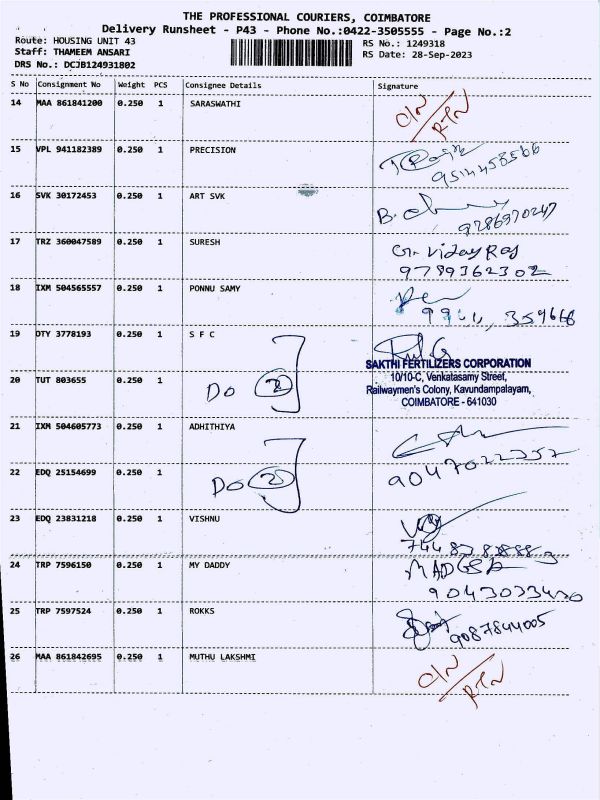 THE PROFESSIONAL COURIERS, COIMBATORE
Delivery Runsheet - P43 - Phone No.:0422-3505555 - Page No.:2
Route: HOUSING UNIT 43
RS No.: 1249318
Staff: THAMEEM ANSARI
RS Date: 28-Sep-2023
DRS No.: DCJB124931802
S No Consignment No Weight PCS Consignee Details Signature
14 MAA 861841200 0.250 1 SARASWATHI
15 VPL 941182389 0.250 1 PRECISION
16 SVK 30172453 0.250 1 ART SVK
9786970247
17 TRZ 360047589 0.250 1 SURESH G. Viday Raj
9789362302
18 IXM 504565557 0.250 1 PONNU SAMY
19 DTY 3778193 0.250 1 S F C
SAKTHI FERTILIZERS CORPORATION
10/10-C, Venkatasamy Street,
20 TUT 803655 0.250 1 Do 2
Railwaymen's Colony, Kavundampalayam,
COIMBATORE - 641030
21 IXM 504605773 0.250 1 ADHITHIYA
9047022357
22 EDQ 25154699 0.250 1 Do 2
23 EDQ 23831218 0.250 1 VISHNU
24 TRP 7596150 0.250 1 MY DADDY
9043033430
25 TRP 7597524 0.250 1 ROKKS
9087844005
26 MAA 861842695 0.250 1 MUTHU LAKSHMI